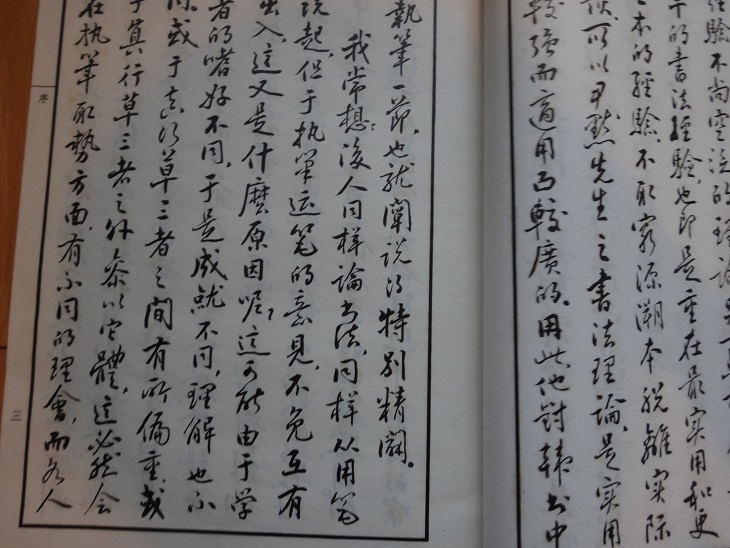 经驗不尚空泛的理論是
干的書法經驗,也即是重在最实用和更
本的經驗,不取窮源溯本脱離实际
可以尹默先生之書法理論,是实用
較强而適用面較廣的。用此,他對韩书中
執筆一節,也就闡说得特别精闢。
我常想,後人同样論书法,同样从用笔
说起,但于执筆运笔的意見,不免互有
出入,這又是什麽原因呢?這可能由于学
者的嗜好不同,于是成就不同,理解也不
同。或于真行草三者之間有所偏重,或
于真行草三者之外參以它體,這必然会
在执筆取勢方面,有不同的理會,而各人
序
三